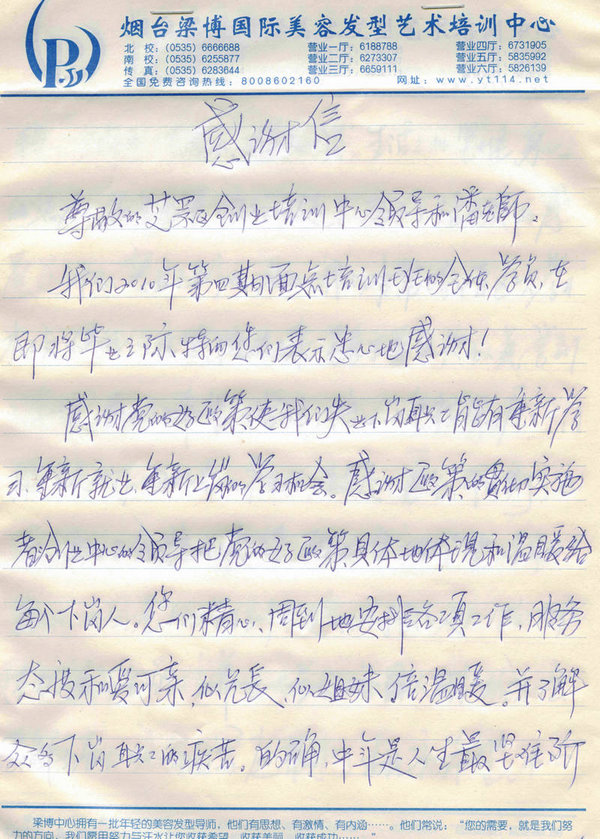 烟台梁博国际美容发型艺术培训中心
北 校：(0535) 6666688 营业一厅：6188788 营业四厅：6731905
南 校：(0535) 6255877 营业二厅：6273307 营业五厅：5835992
传 真：(0535) 6283644 营业三厅：6659111 营业六厅：5826139
全国免费咨询热线：8008602160 网址：www.yt114.net
感谢信
尊敬的艾 创业培训中心领导和潘老师。
我们2010年第四期面点培训班的全体学员，在
即将毕业之际，特向您们表示忠心地感谢！
感谢党的好政策使我们失业下岗职工能有重新学
习、重新就业、重新上岗的学习机会。感谢政策的贯彻实施
者 位中心的领导把党的好政策具体地体现和温暖给
每个下岗人。您们精心、周到地安排各项工作，服务
态度和爱可亲，似兄长、似姐妹，倍温暖。并了解
众多下岗职工的疾苦。的确，中年是人生最艰难的阶
梁博中心拥有一批年轻的美容发型导师，他们有思想、有激情、有内涵……。他们常说：“您的需要，就是我们努
力的方向，我们要用努力与汗水让您收获希望、收获美丽、收获成功……。”